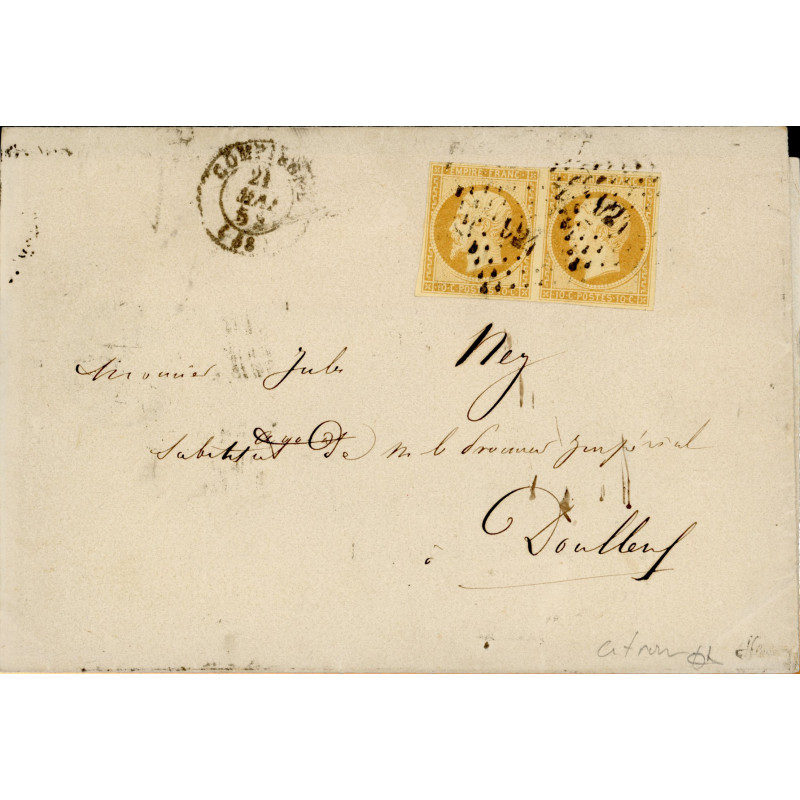 COMPIEGNE
21
MAI
5
(58)
EMPIRE FRANC
10·C·POSTES·10·C
10·C·POSTES·10·C·
Monsieur Jules Ney
Substitut de M le Procureur Impérial
à Doullens
citron